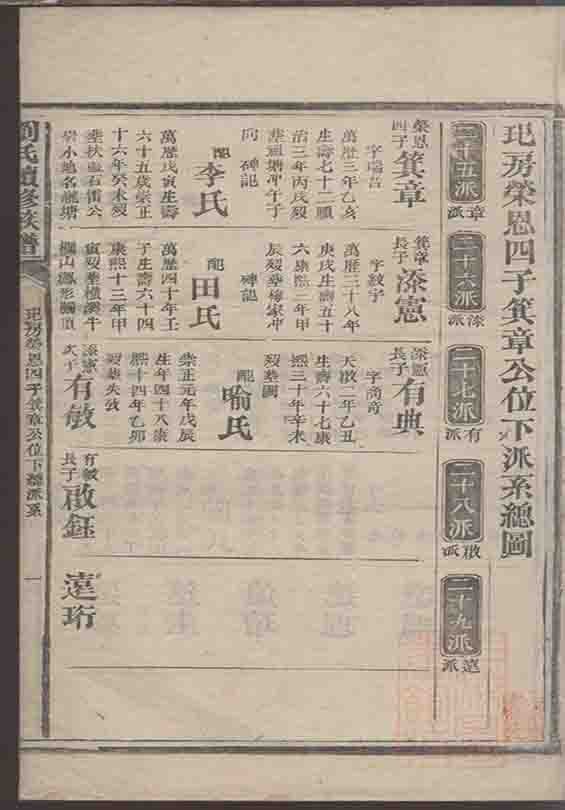 玭房榮恩四子箕章公位下派系總圖
二十五派
章派
二十六派
淙派
二十七派
有派
二十八派
啟派
二十九派
遠派
榮恩四子
箕章
字瑞吾
萬歷三年乙亥
生壽七十二順
治三年丙戌歿
葬
塘冲午子
向碑記
配李氏
萬歷戊寅生壽
六十五歲崇正
十六年癸未歿
箕章長子
淙憲
字紋宇
萬歷三十八年
庚戌生壽五十
六康熙
年甲
辰歿葬楊家冲
碑記
配田氏
萬歷四十年壬
子生壽六十四
康熙十三年甲
寅歿葬
淙憲長子
有典
字商奇
天啟二年乙丑
生壽六十七康
熙三十年辛未
歿葬
配喻氏
崇正元年戊辰
生年四十八康
熙十四年乙卯
歿葬失攷
淙憲次子
有敏
有敏長子
啟鈺
遠珩
劉氏續修族譜
玭房榮恩四子箕章公位下總派系
一